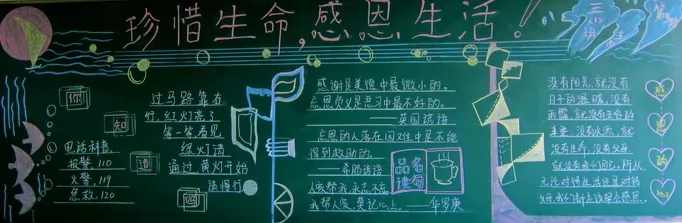 珍惜生命,感恩生活!
你
知
道
吗
电话科普。
报警 110
火警。119
急救。120
过马路靠右
行,红灯亮了
等一等看见
绿灯请
通过 黄灯开始
请慢行
感谢是美德中最微小的。
忘恩负义是恶习中最不好的。
——英国谚语
忘恩的人落在困难中是不能
得到救助的。
——希腊谚语
人家帮我,永志不忘
我帮人家,莫记心上。——华罗庚
品名
读句
没有阳光,就没有
日子的温暖,没有
雨露,就没有五谷的
丰登,没有水源,就
没有生命,没有父母,
就没有我们自己,所以,
感
恩
的
心